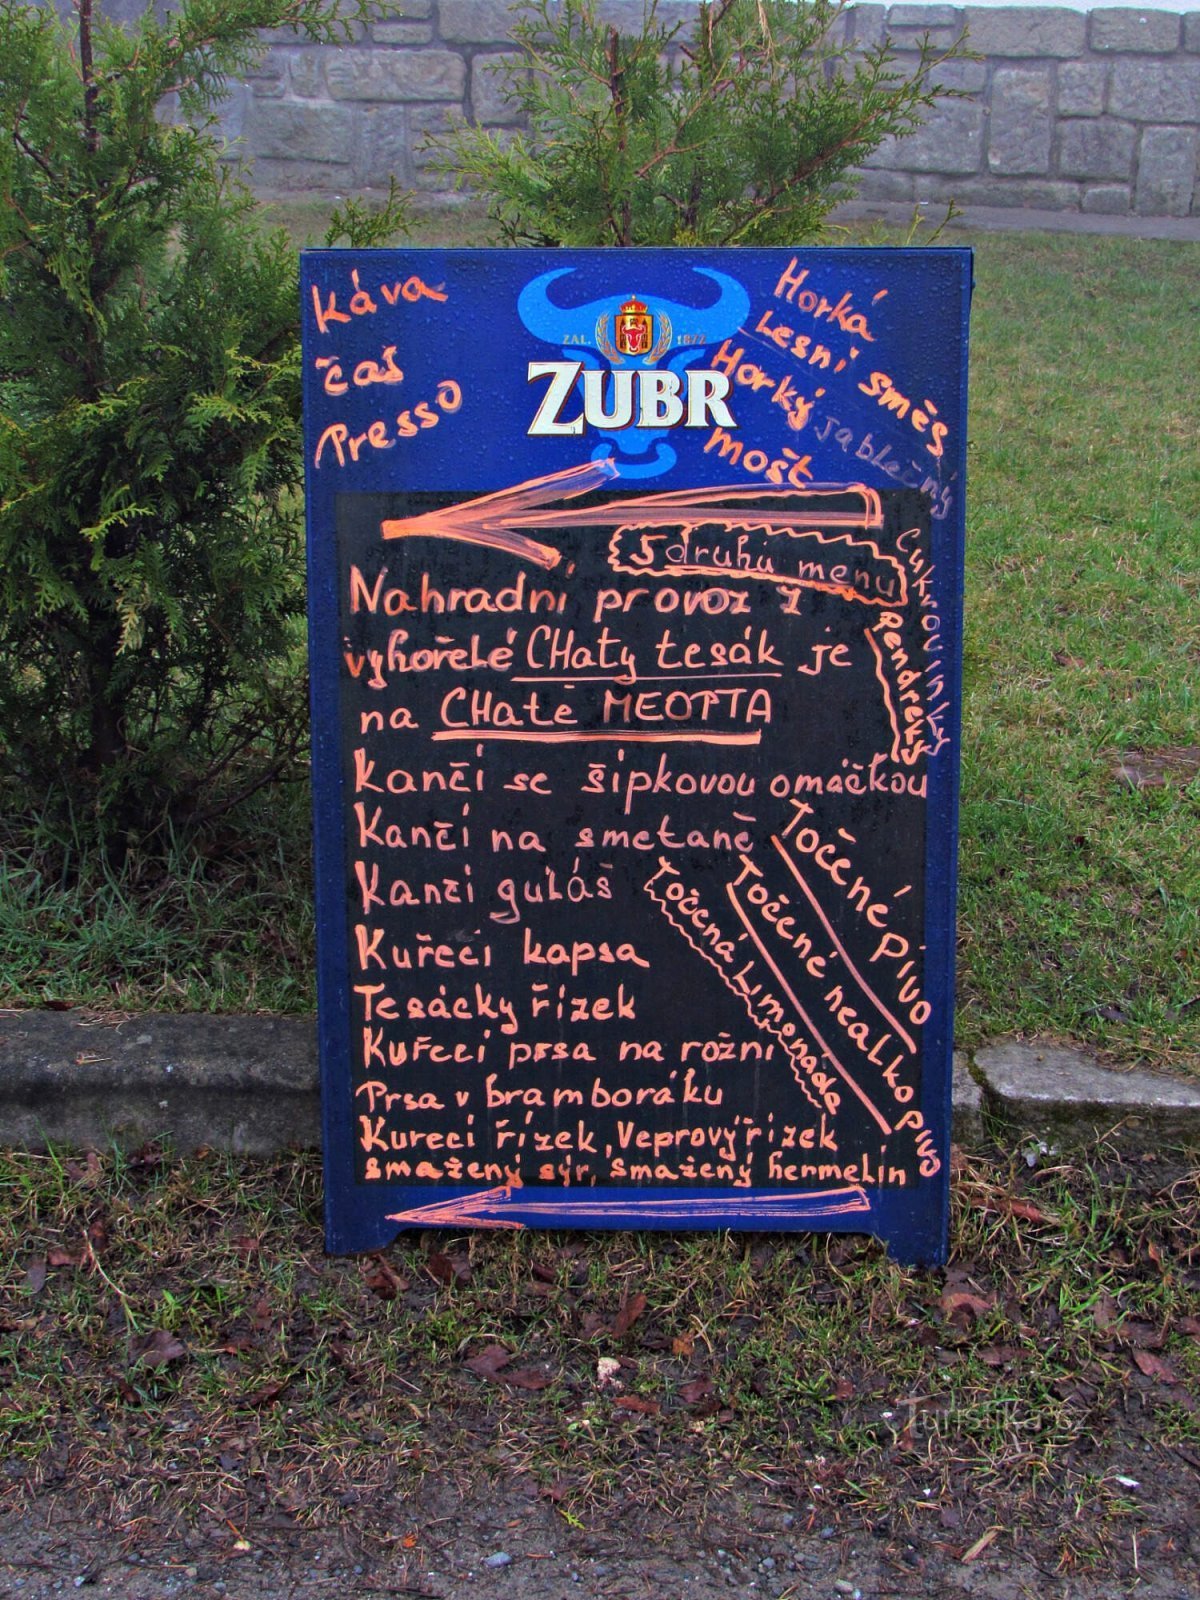 Káva
čaj
Presso
ZAL. 1872
ZUBR
Horká
Lesní směs
Horký jablečný
mošt
5 druhů menu
Cukrovinky
Pendreky
Nahradní provoz z
vyhořelé CHaty tesák je
na CHatě MEOPTA
Kančí se šípkovou omáčkou
Kančí na smetaně
Kančí guláš
Kuřecí kapsa
Tesácky řízek
Kuřecí prsa na rožni
Prsa v bramboráku
Kurecí řízek, Veprový řizek
smažený sýr, smažený hermelín
Točené pivo
Točené nealko pivo
Točená Limonáda
Turistika.cz